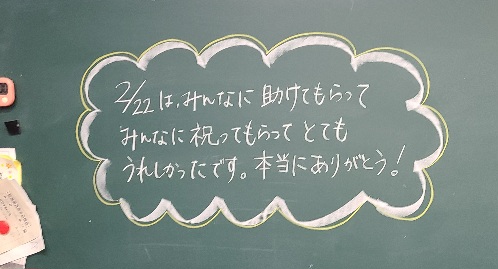 2/22は、みんなに助けてもらって
みんなに祝ってもらってとても
うれしかったです。本当にありがとう!